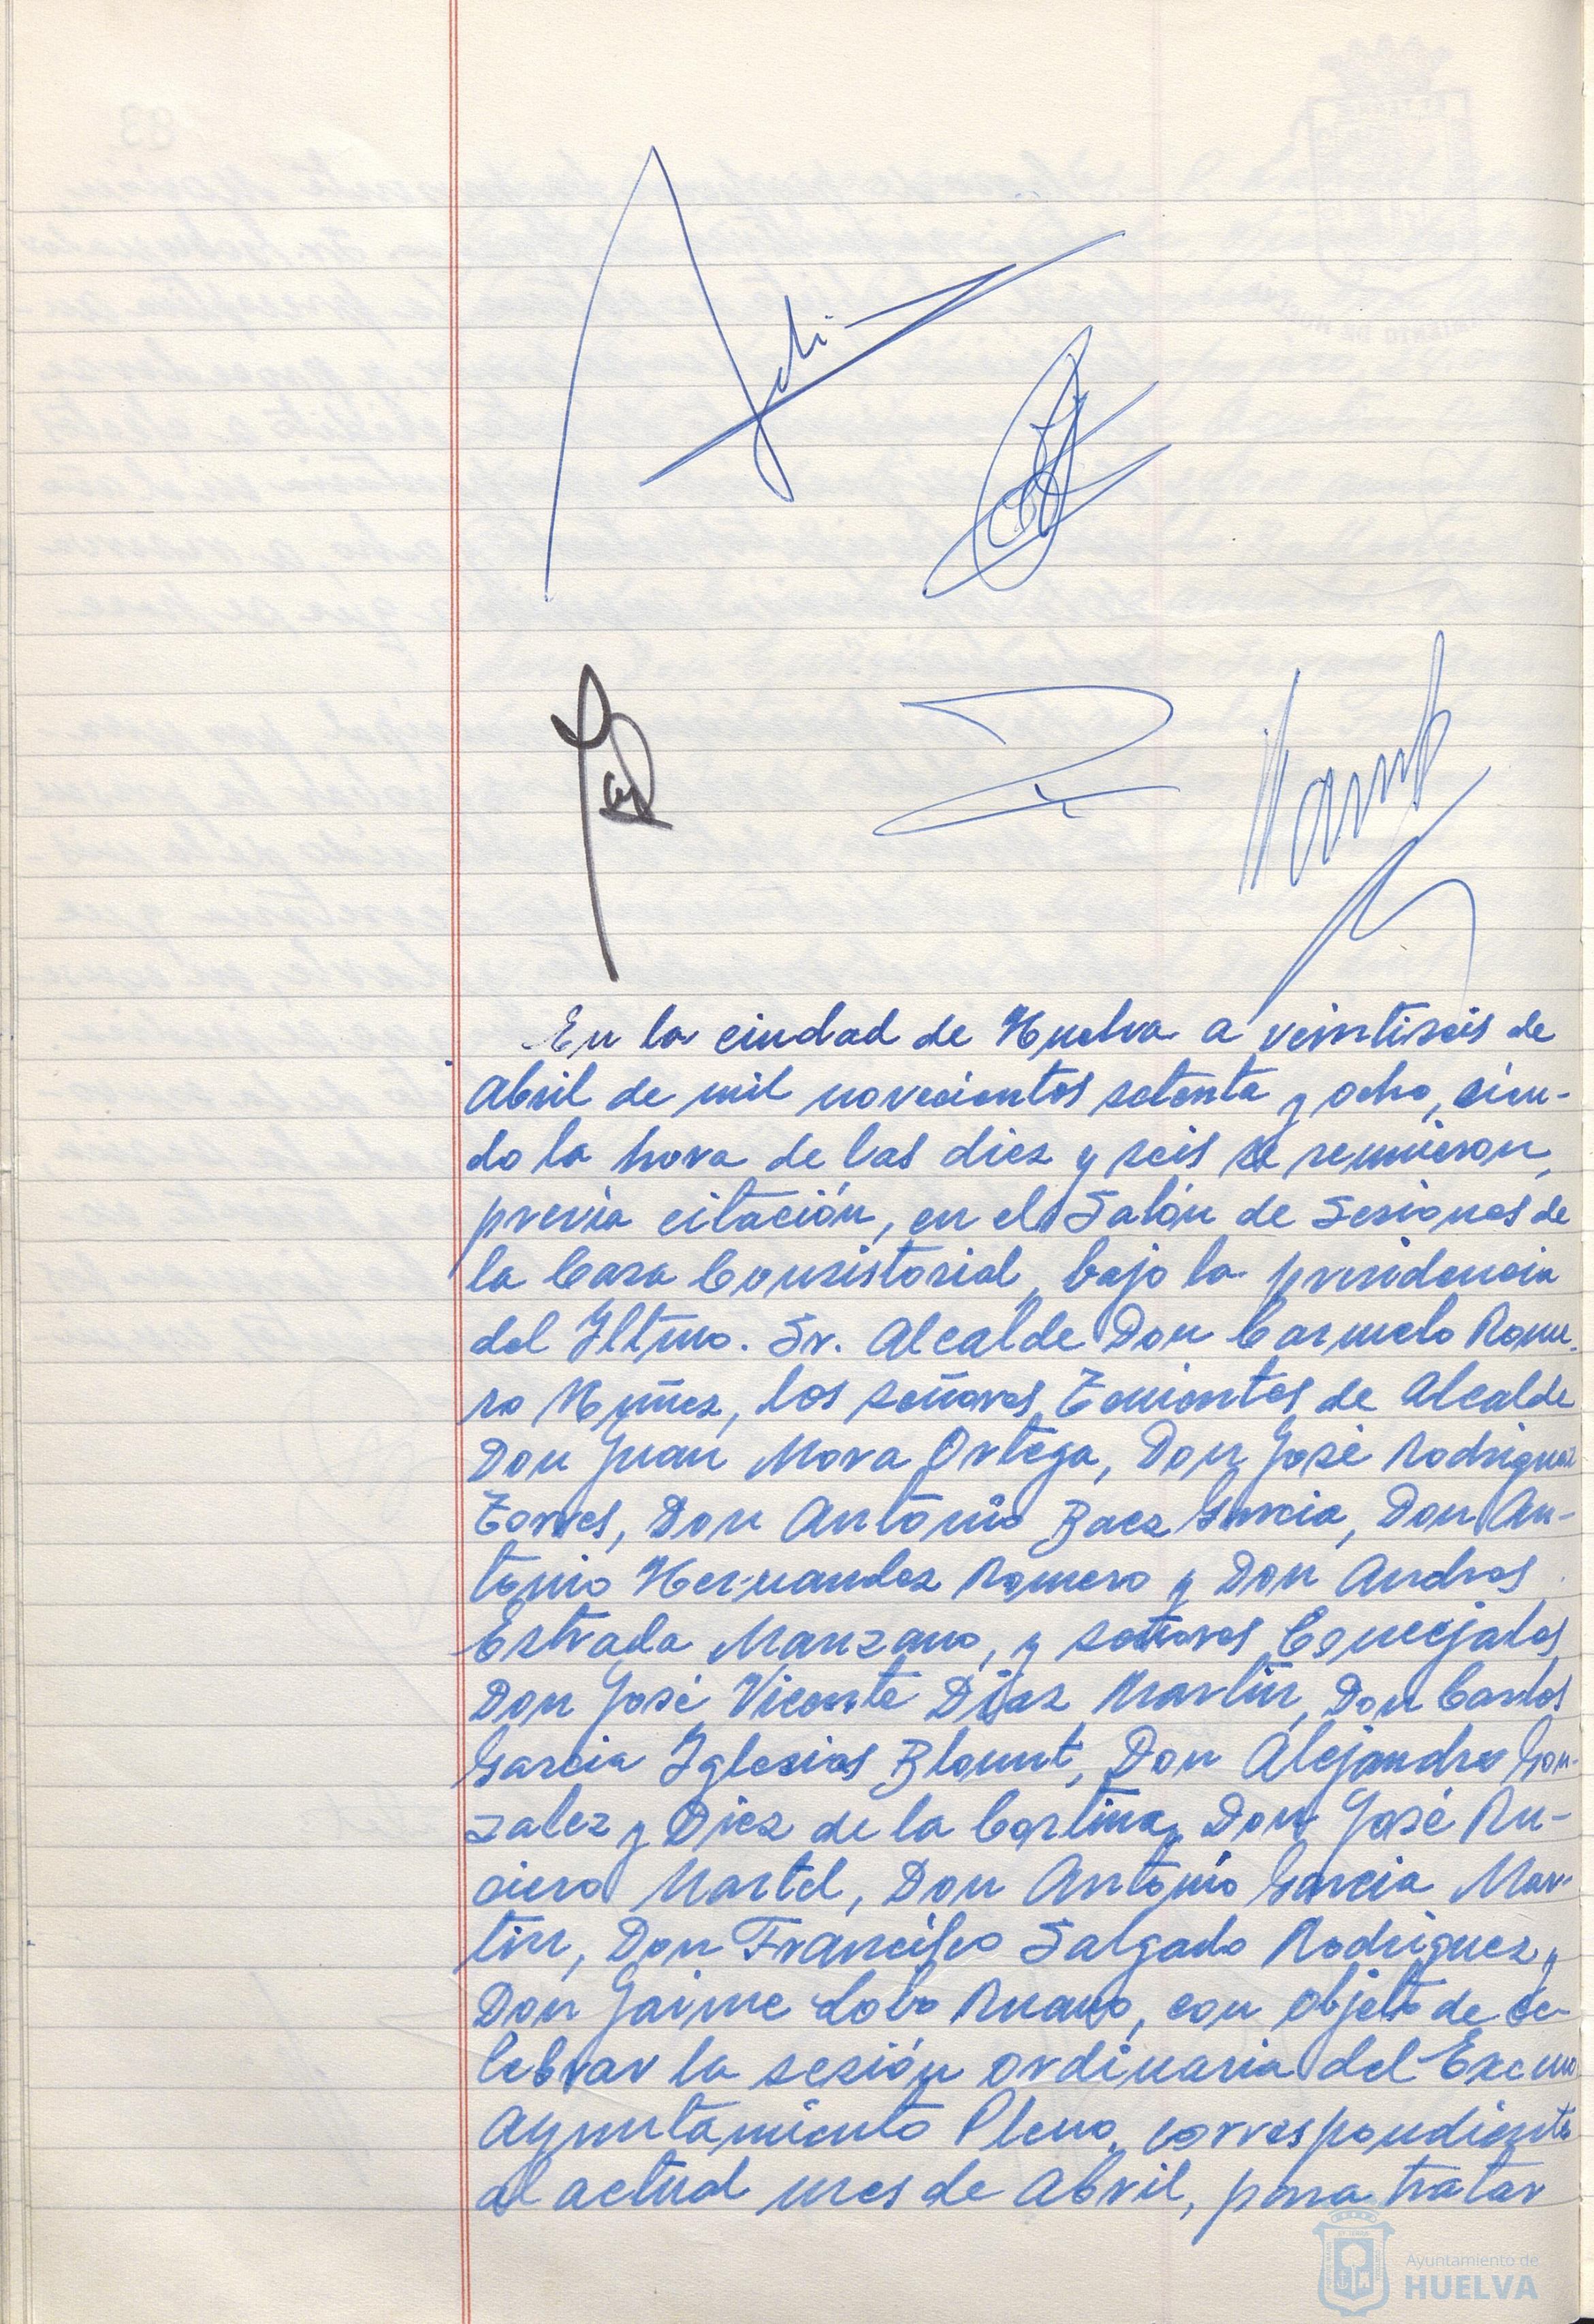 En la ciudad de Huelva a veintiseis de
Abril de mil novecientos setenta y ocho, sien-
do la hora de las diez y seis se reunieron,
previa citación, en el Salón de Sesiones de
la Casa Consistorial, bajo la presidencia
del Iltmo. Sr. Alcalde Don Carmelo Rome-
ro Nuñez, los señores Tenientes de Alcalde
Don Juan Mora Ortega, Don José Rodriguez
Torres, Don Antonio Baez Garcia, Don An-
tonio Hernandez Romero y Don Andres
Estrada Manzano, y señores Concejales
Don José Vicente Díaz Martin, Don Carlos
Garcia Iglesias Blount, Don Alejandro Gon-
zalez y Diez de la Cortina, Don José Ru-
ciero Martel, Don Antonio Garcia Mar-
tin, Don Francisco Salgado Rodriguez y
Don Jaime Lobo Ruano, con objeto de ce-
lebrar la sesión ordinaria del Excmo
Ayuntamiento Pleno, correspondiente
al actual mes de Abril, para tratar
Ayuntamiento de
HUELVA